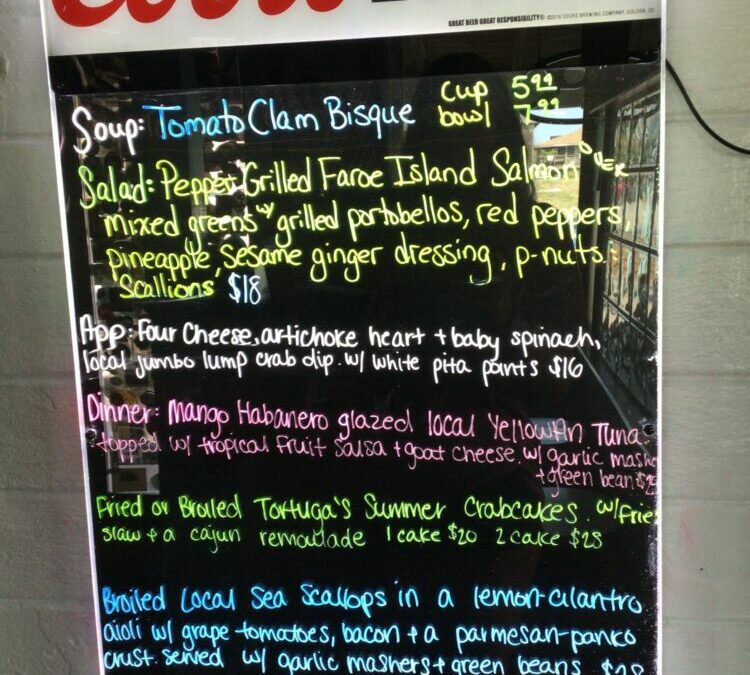 Coors
GREAT BEER GREAT RESPONSIBILITY® ©2018 COORS BREWING COMPANY, GOLDEN, CO
Soup: Tomato Clam Bisque cup 5.99
bowl 7.99
Salad: Pepper Grilled Faroe Island Salmon OVER
mixed greens w/ grilled portobellos, red peppers,
pineapple, sesame ginger dressing, p-nuts.
Scallions $18
App: Four Cheese, artichoke heart + baby spinach,
local jumbo lump crab dip. w/ white pita points $16
Dinner: Mango Habanero glazed local Yellowfin Tuna
topped w/ tropical fruit salsa + goat cheese. w/ garlic mashe
+ green bean
Fried or Broiled Tortuga's Summer Crabcakes. w/ fries
slaw + a cajun remoulade 1 cake $20 2 cake $28
Broiled Local Sea Scallops in a lemon-cilantro
aioli w/ grape tomatoes, bacon + a parmesan-panko
crust. served w/ garlic mashers + green beans $28